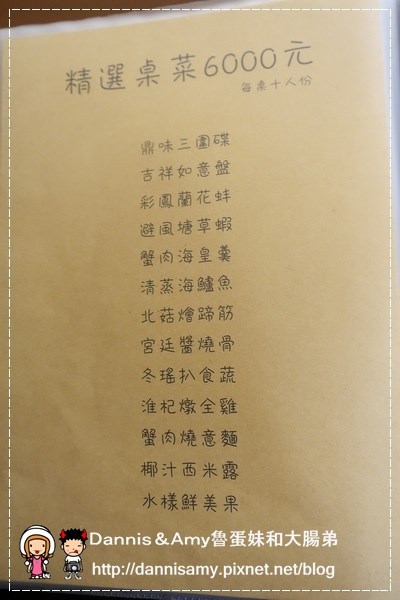 精選桌菜6000元
每桌十人份
鼎味三圍碟
吉祥如意盤
彩鳳蘭花蚌
避風塘草蝦
蟹肉海皇羹
清蒸海鱸魚
北菇燴蹄筋
宮廷醬燒骨
冬瑤扒食蔬
淮杞燉全雞
蟹肉燒意麵
椰汁西米露
水樣鮮美果
Dannis & Amy魯蛋妹和大腸弟
http://dannisamy.pixnet.net/blog